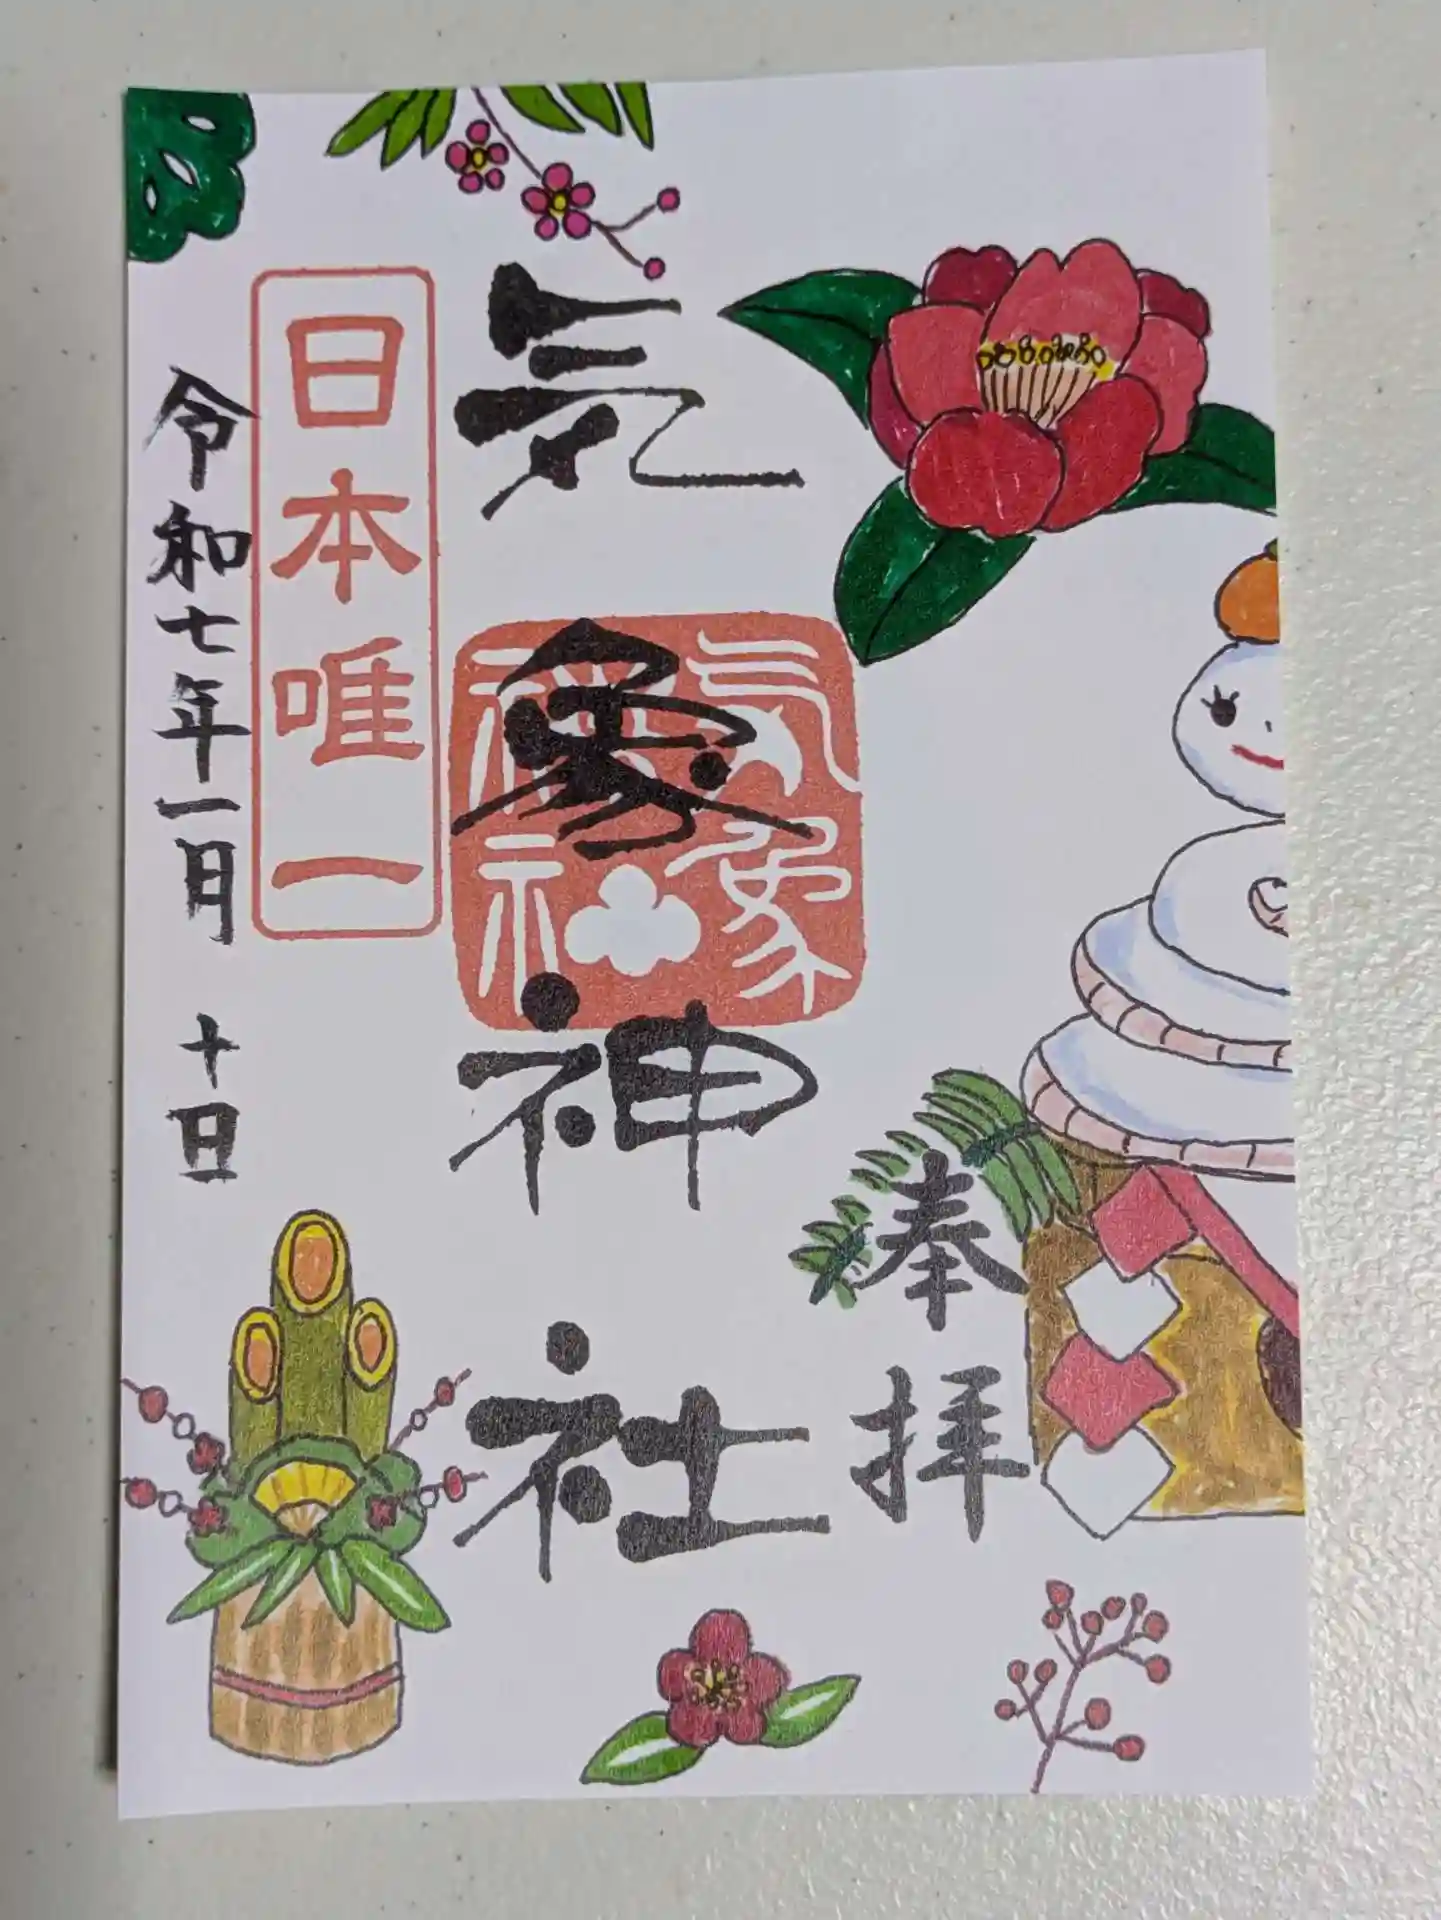 奉拝
気象神社
気象神社
日本唯一
令和七年一月十日